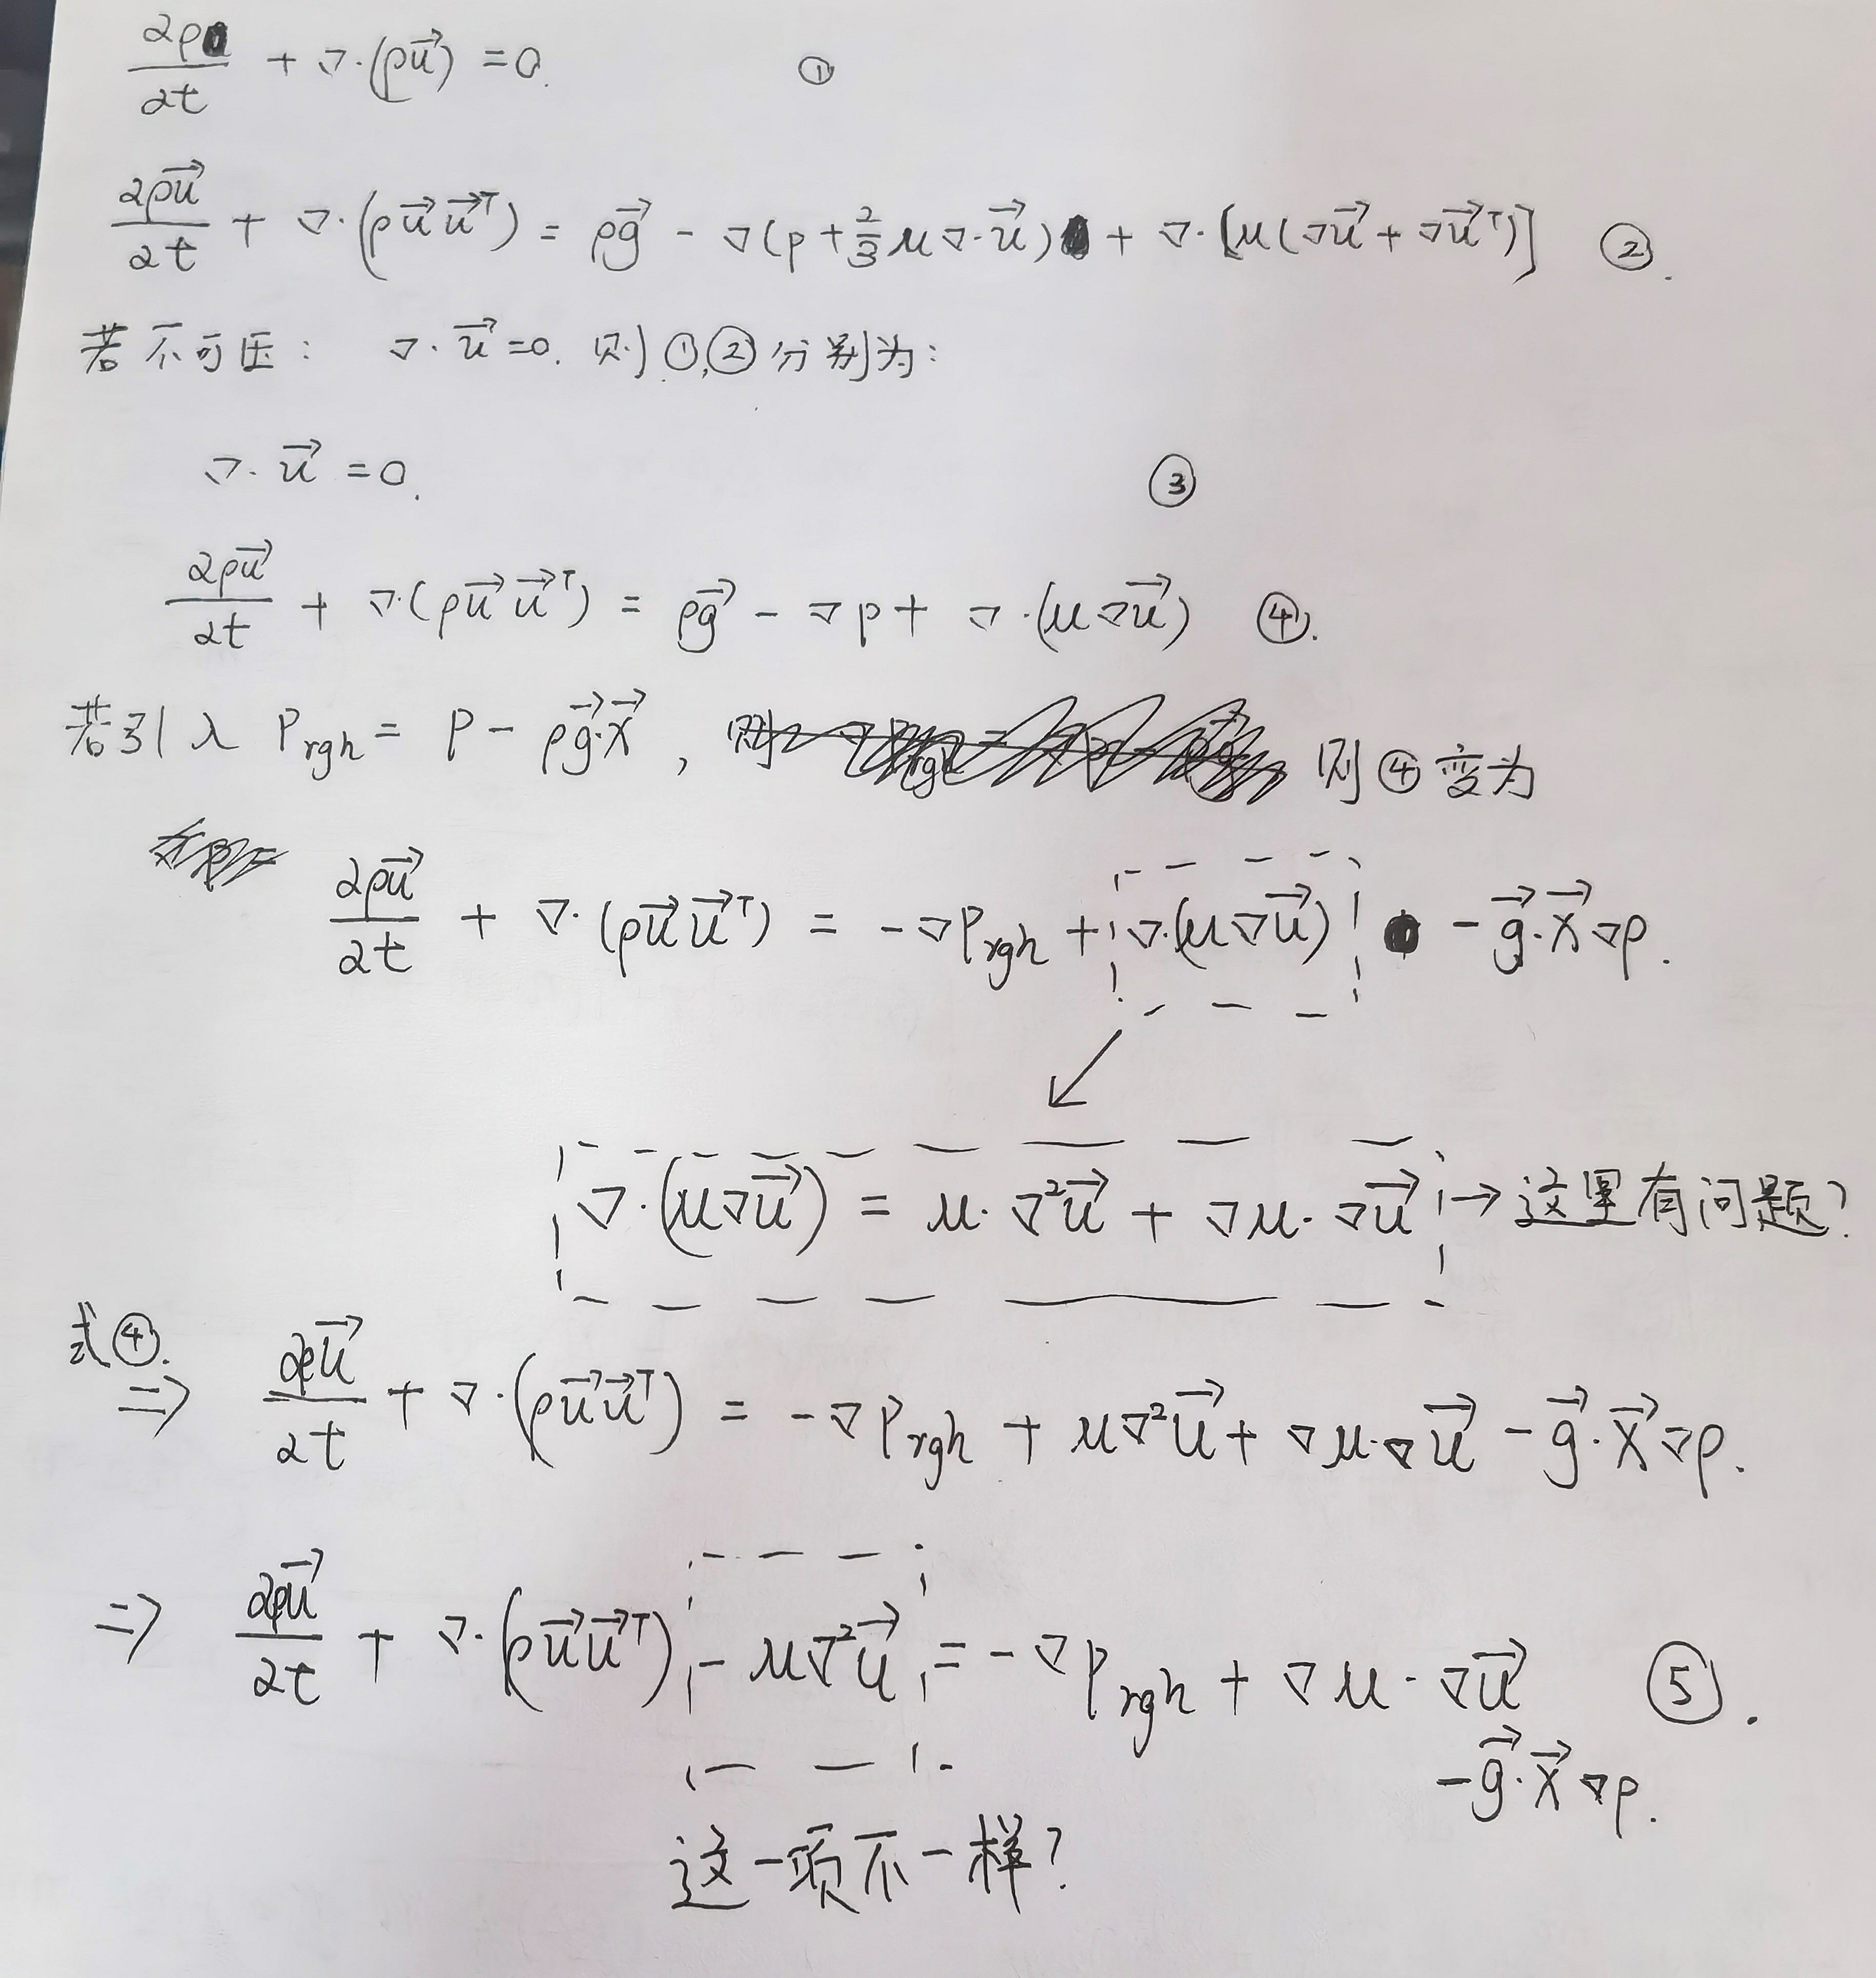 ∂ρ/∂t + ∇·(ρu⃗) = 0. ①
∂ρu⃗/∂t + ∇·(ρu⃗u⃗ᵀ) = ρg⃗ - ∇(p + 2/3 μ∇·u⃗) + ∇·[μ(∇u⃗ + ∇u⃗ᵀ)] ②.
若不可压: ∇·u⃗ = 0. 则①,②分别为:
∇·u⃗ = 0. ③
∂ρu⃗/∂t + ∇·(ρu⃗u⃗ᵀ) = ρg⃗ - ∇p + ∇·(μ∇u⃗) ④.
若引入 P_rgh = P - ρg⃗·x⃗, 则④变为
∂ρu⃗/∂t + ∇·(ρu⃗u⃗ᵀ) = -∇P_rgh + ∇·(μ∇u⃗) - g⃗·x⃗∇ρ.
∇·(μ∇u⃗) = μ·∇²u⃗ + ∇μ·∇u⃗ → 这里有问题?
式④.
⇒ ∂ρu⃗/∂t + ∇·(ρu⃗u⃗ᵀ) = -∇P_rgh + μ∇²u⃗ + ∇μ·∇u⃗ - g⃗·x⃗∇ρ.
⇒ ∂ρu⃗/∂t + ∇·(ρu⃗u⃗ᵀ) - μ∇²u⃗ = -∇P_rgh + ∇μ·∇u⃗ ⑤.
-g⃗·x⃗∇ρ.
这一项不一样?